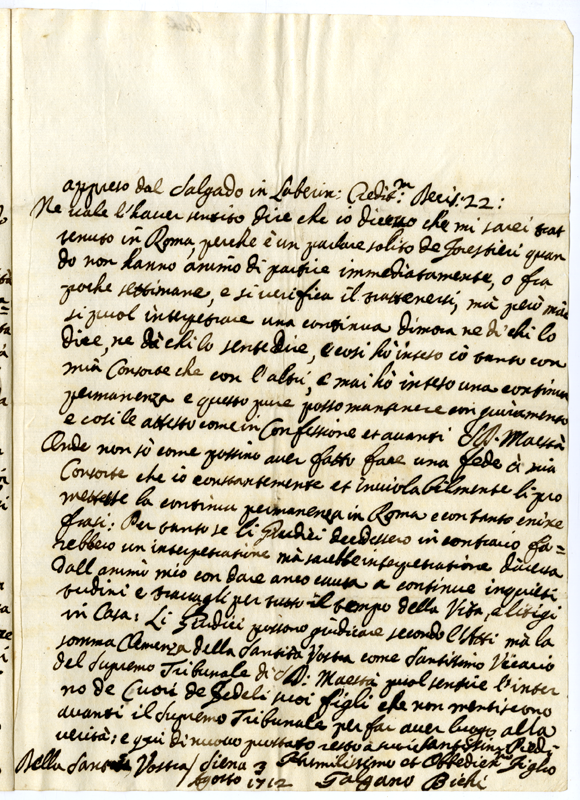 appreso dal Salgado in Laberin: Credit.m Decis. 22:
Ne vale l'haver sentito dire che io dicevo che mi sarei trat
tenuto in Roma, perche è un parlare solito de Forestieri quan
do non hanno animo di partire immediatamente, o fra
poche settimane, e si verifica il trattenersi, mà però mai
si puol interpetrare una continua dimora ne di chi lo
dice, ne di chi lo sente dire, e così hò inteso io tanto con
mia Consorte che con l'altri, e mai hò inteso una continua
permanenza e questo pure posso mantenere con giuramento
e così le attesto come in Confessione et avanti S.D. Maestà
Onde non sò come possino aver fatto fare una fede à mia
Consorte che io constantemente et inviolabilmente li pro
mettesse la continua permanenza in Roma e con tante enixe
frasi: Per tanto se li Giudici decidessero in contrario fa=
rebbero un interpetratione mà sarebbe interpetratione diversa
dall animo mio con dare anco causa a continue inquieti
tudini e travagli per tutto il tempo della Vita, e litigi
in Casa: Li Giudici possono giudicare secondo l'Atti mà la
somma Clemenza della Santità Vostra come Santissimo Vicario
del Supremo Tribunale di S.D. Maestà puol sentire l'inter
no de Cuori de Fedeli suoi figli che non mentiscono
avanti il Supremo Tribunale per far aver luogo alla
verità: e qui di nuovo prostrato resto a suoi Santissimi Piedi
Della Santità Vostra / Siena 3 Humilissimo et Obbedien. Figlio
Agosto 1712 Galgano Bichi